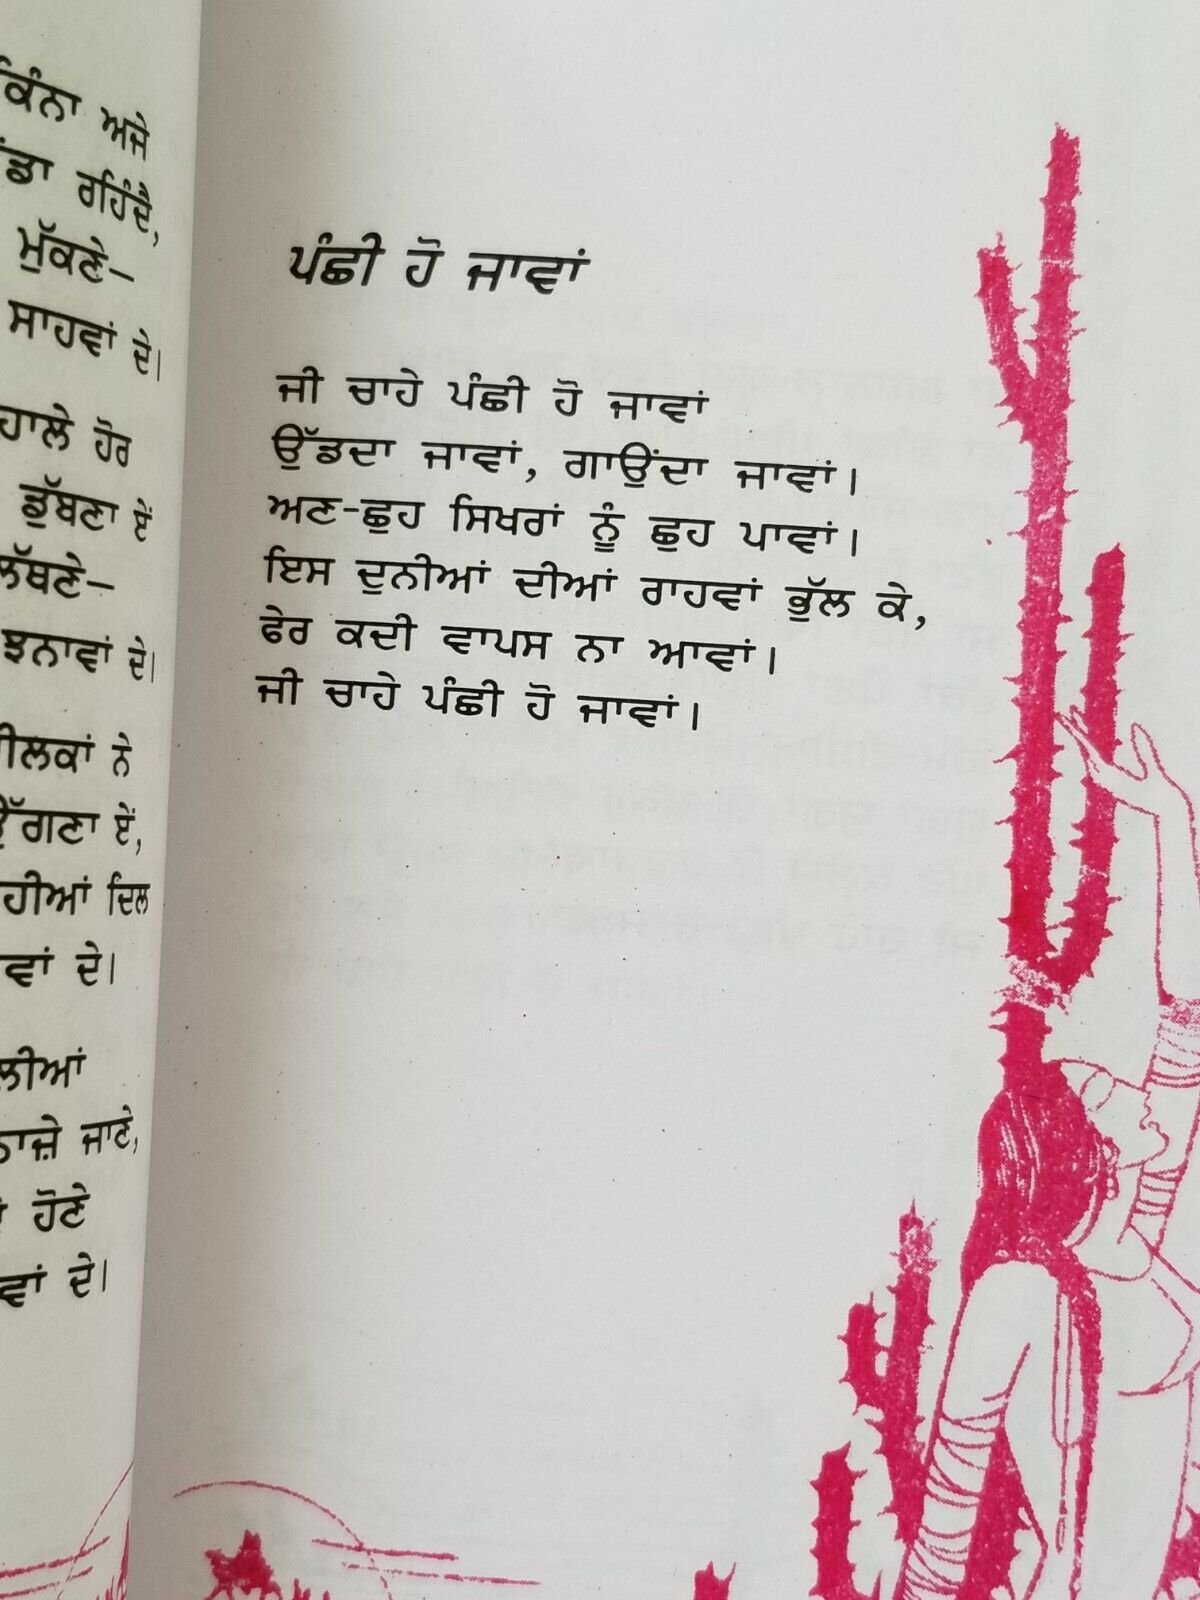 ਕਿੰਨਾ ਅਜੇ
ਰਹਿੰਦੈ,
ਮੁੱਕਣੇ–
ਸਾਹਵਾਂ ਦੇ।
ਹਾਲੇ ਹੋਰ
ਡੁੱਬਣਾ ਏਂ
ਲੱਥਣੇ–
ਝਨਾਵਾਂ ਦੇ।
ਨੇ
ਏਂ,
ਦਿਲ
ਦੇ।
ਜਾਣੇ,
ਹੋਣੇ
ਦੇ।
ਪੰਛੀ ਹੋ ਜਾਵਾਂ
ਜੀ ਚਾਹੇ ਪੰਛੀ ਹੋ ਜਾਵਾਂ
ਉੱਡਦਾ ਜਾਵਾਂ, ਗਾਉਂਦਾ ਜਾਵਾਂ।
ਅਣ-ਛੁਹ ਸਿਖਰਾਂ ਨੂੰ ਛੁਹ ਪਾਵਾਂ।
ਇਸ ਦੁਨੀਆਂ ਦੀਆਂ ਰਾਹਵਾਂ ਭੁੱਲ ਕੇ,
ਫੇਰ ਕਦੀ ਵਾਪਸ ਨਾ ਆਵਾਂ।
ਜੀ ਚਾਹੇ ਪੰਛੀ ਹੋ ਜਾਵਾਂ।